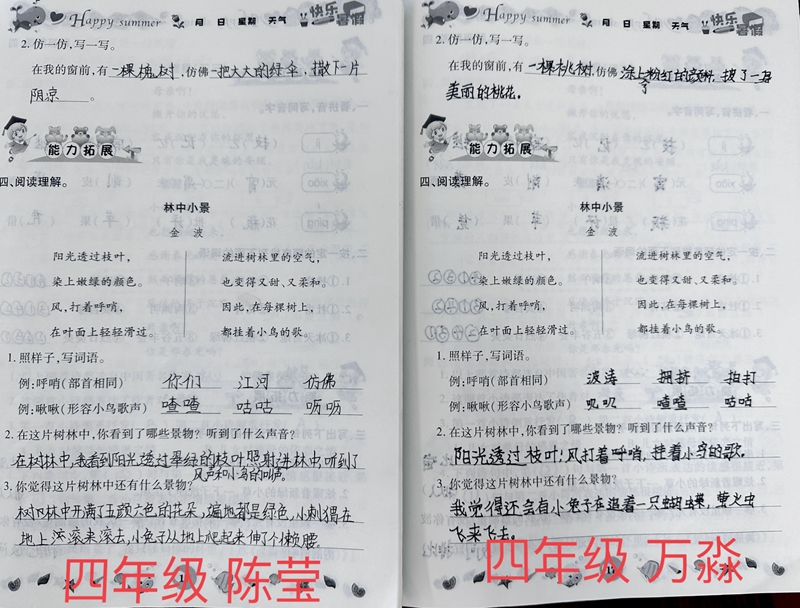 Happy summer 月 日 星期 天气 快乐暑假
2. 仿一仿,写一写。
在我的窗前,有一棵槐树,仿佛一把大大的绿伞,撒下一片
阴凉。
能力拓展
四、阅读理解。
林中小景
金 波
阳光透过枝叶,
染上嫩绿的颜色。
风,打着呼哨,
在叶面上轻轻滑过。
流进树林里的空气,
也变得又甜、又柔和。
因此,在每棵树上,
都挂着小鸟的歌。
1. 照样子,写词语。
例:呼哨(部首相同) 你们 江河 仿佛
例:啾啾(形容小鸟歌声) 喳喳 咕咕 呖呖
2. 在这片树林中,你看到了哪些景物?听到了什么声音?
在树林中,我看到阳光透过翠绿的枝叶照射进林中,听到了
风声和小鸟的叫声。
3. 你觉得这片树林中还有什么景物?
树林中开满了五颜六色的花朵,遍地都是绿色,小刺猬在
地上滚来滚去,小兔子从地上爬起来伸了个懒腰。
四年级 陈莹
Happy summer 月 日 星期 天气 快乐暑假
2. 仿一仿,写一写。
在我的窗前,有一棵桃树,仿佛涂上了粉红的颜料,披了一身
美丽的桃花。
能力拓展
四、阅读理解。
林中小景
金 波
阳光透过枝叶,
染上嫩绿的颜色。
风,打着呼哨,
在叶面上轻轻滑过。
流进树林里的空气,
也变得又甜、又柔和。
因此,在每棵树上,
都挂着小鸟的歌。
1. 照样子,写词语。
例:呼哨(部首相同) 波涛 拥挤 拍打
例:啾啾(形容小鸟歌声) 叽叽 喳喳 咕咕
2. 在这片树林中,你看到了哪些景物?听到了什么声音?
阳光透过枝叶,风打着呼哨,挂着小鸟的歌。
3. 你觉得这片树林中还有什么景物?
我觉得还会有小兔子在追着一只蝴蝶,萤火虫
飞来飞去。
四年级 万淼